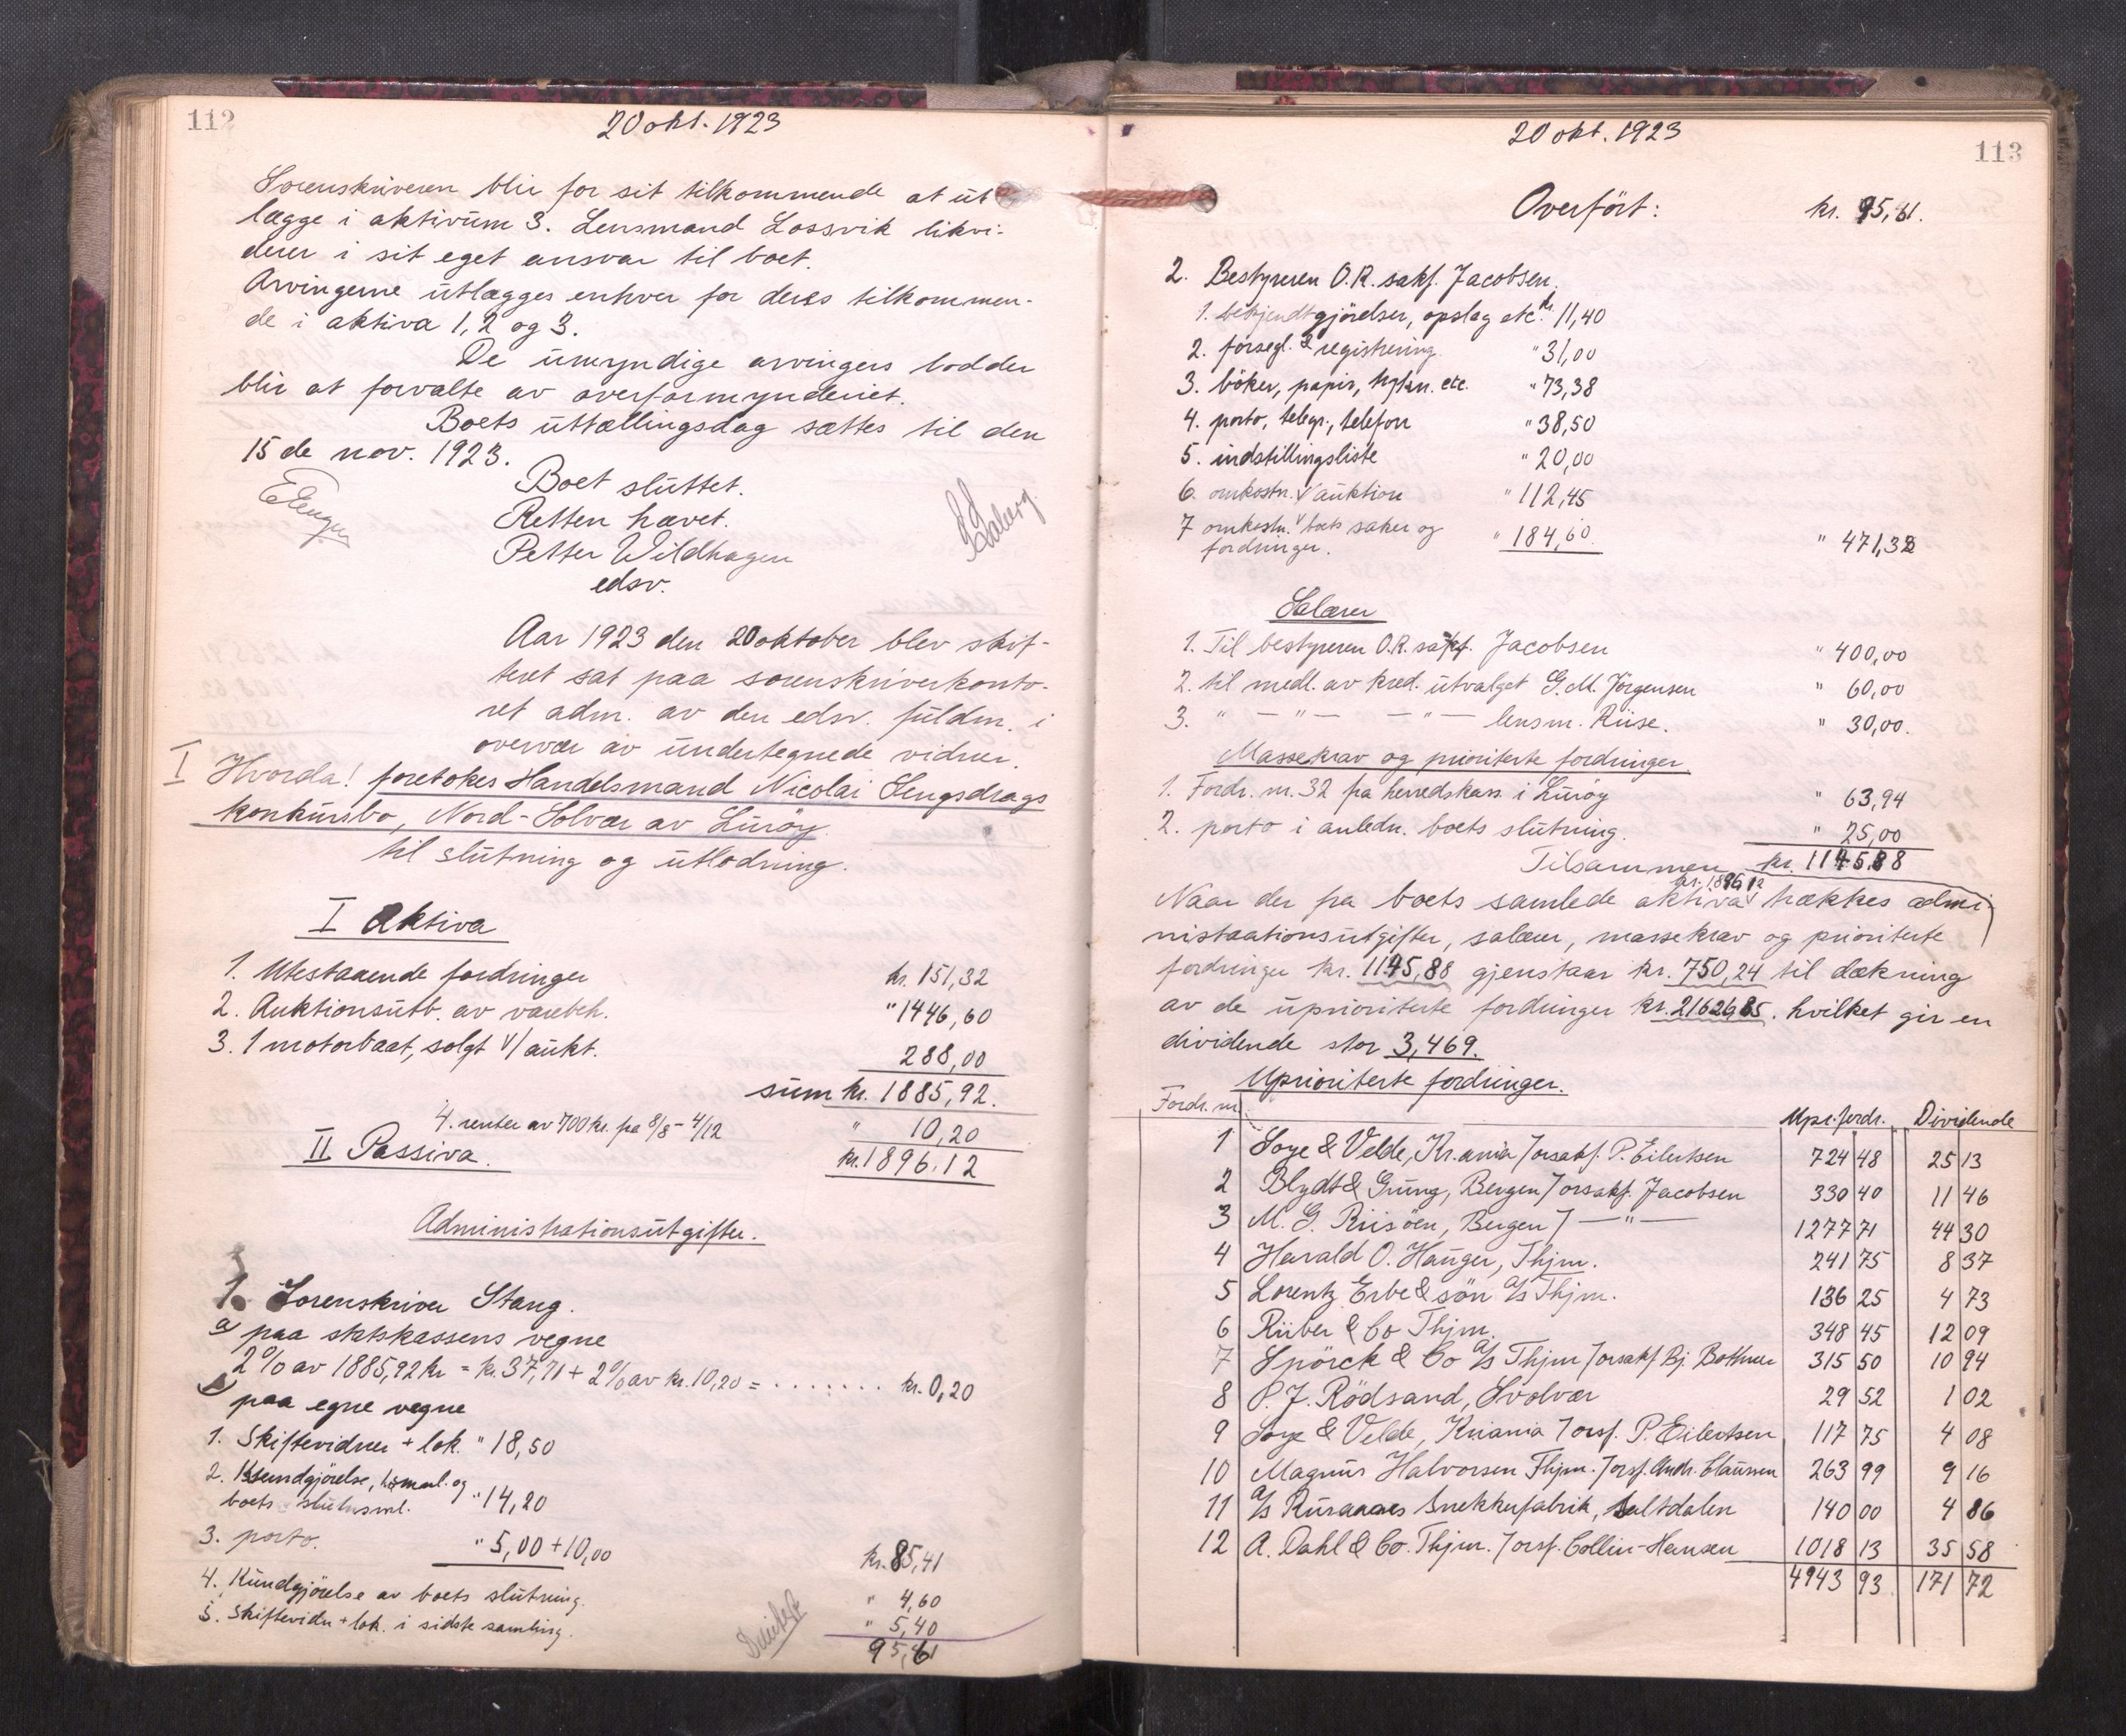 112
20 okt. 1923
Sorenskriveren blir for sit tilkommende at ut
lægge i aktivum 3. Lensmand Lossvik likvi-
derer i sit eget ansvar til boet.
Arvingerne utlægges enhver for deres tilkommen-
de i aktiva 1, 2 og 3.
De umyndige arvingers lodder
blir at forvalte av overformynderiet.
Boets uttællingsdag sættes til den
15 de nov. 1923.
Boet sluttet.
Retten hævet.
Petter Wildhagen
edsv.
Aar 1923 den 20 oktober blev skif-
teret sat paa sorenskriverkonto-
ret adm. av den edsv. fuldm. i
overvær av undertegnede vidner.
I Hvorda! foretokes Handelsmand Nicolai Lengsdrags
konkursbo, Nord-Solvær av Luröy
til slutning og utlodning.
I Aktiva
1. Utestaaende fordringer kr. 151,32
2. Auktionsutb. av varebeh. " 1446,60
3. 1 motorbaat, solgt v/ aukt. 288,00
sum kr. 1885,92.
4. renter av 700 kr. fra 8/8 - 4/12 " 10,20
II Passiva. kr. 1896,12
Administrationsutgifter.
1. Sorenskriver Stang.
a paa statskassens vegne
2% av 1885,92 kr = kr. 37,71 + 2% av kr. 10,20 = ....... kr. 0,20
b paa egne vegne
1. Skiftevidner + lok. " 18,50
2. Kundgjörelse, og
boets slutn. " 14,20
3. porto. " 5,00 + 10,00 kr. 85,41
4. Kundgjörelse av boets slutning. " 4,60
5. Skiftevidn + lok. i sidste samling. " 5,40
95,61
113
20 okt. 1923
Overfört: kr. 95,61.
2. Bestyreren O.R. sakf. Jacobsen.
1. bekjendtgjörelser, opslag etc. kr. 11,40
2. forsegl. & registrering " 31,00
3. böker, papir, etc. " 73,38
4. porto, telegr., telefon " 38,50
5. indstillingsliste " 20,00
6. omkostn. v/ auktion " 112,45
7 omkostn. v/ boets saker og
fordringer. " 184,60 " 471,33
Salærer
1. Til bestyreren O.R. sakf. Jacobsen " 400,00
2. til medl. av kred. utvalget G. M. Jörgensen " 60,00
3. " — " — — " — lensm. Riise. " 30,00.
Massekrav og prioriterte fordringer.
1. Fordr. nr. 32 fra herredskass. i Luröy " 63,94
2. porto i anledn. boets slutning. " 25,00
Tilsammen kr. 1145.88
kr. 1896,12
Naar der fra boets samlede aktiva trækkes admi-
nistrationsutgifter, salærer, massekrav og prioriterte
fordringer kr. 1145,88 gjenstaar kr. 750,24 til dækning
av de uprioriterte fordringer kr. 21626,85. hvilket gir en
dividende stor 3,469.
Uprioriterte fordringer.
Fordr. nr. Upr. fordr. Dividende
1 Loye & Velde, Kr.ania / orsakf. P. Eilertsen 724 48 25 13
2 Blydt & Grung, Bergen / orsakf. Jacobsen 330 40 11 46
3 M. G. Riisöen, Bergen / — " — 1277 71 44 30
4 Harald O. Hauger, Thjm. 241 75 8 37
5 Lorentz Erbe & sön A/s Thjm. 136 25 4 73
6 Riiber & Co Thjm. 348 45 12 09
7 Spörck & Co A/s Thjm / orsakf Bj. Bothner 315 50 10 94
8 P. J. Rödsand, Svolvær 29 52 1 02
9 Loye & Velde, Kriania / orsf. P. Eilertsen 117 75 4 08
10 Magnus Halvorsen Thjm. / orsf. Andr. Claussen 263 99 9 16
11 A/s Rusaanes Snekkerfabrik, Saltdalen 140 00 4 86
12 A. Dahl & Co. Thjm. / orsf. Collin-Hansen 1018 13 35 58
4943 93 171 72